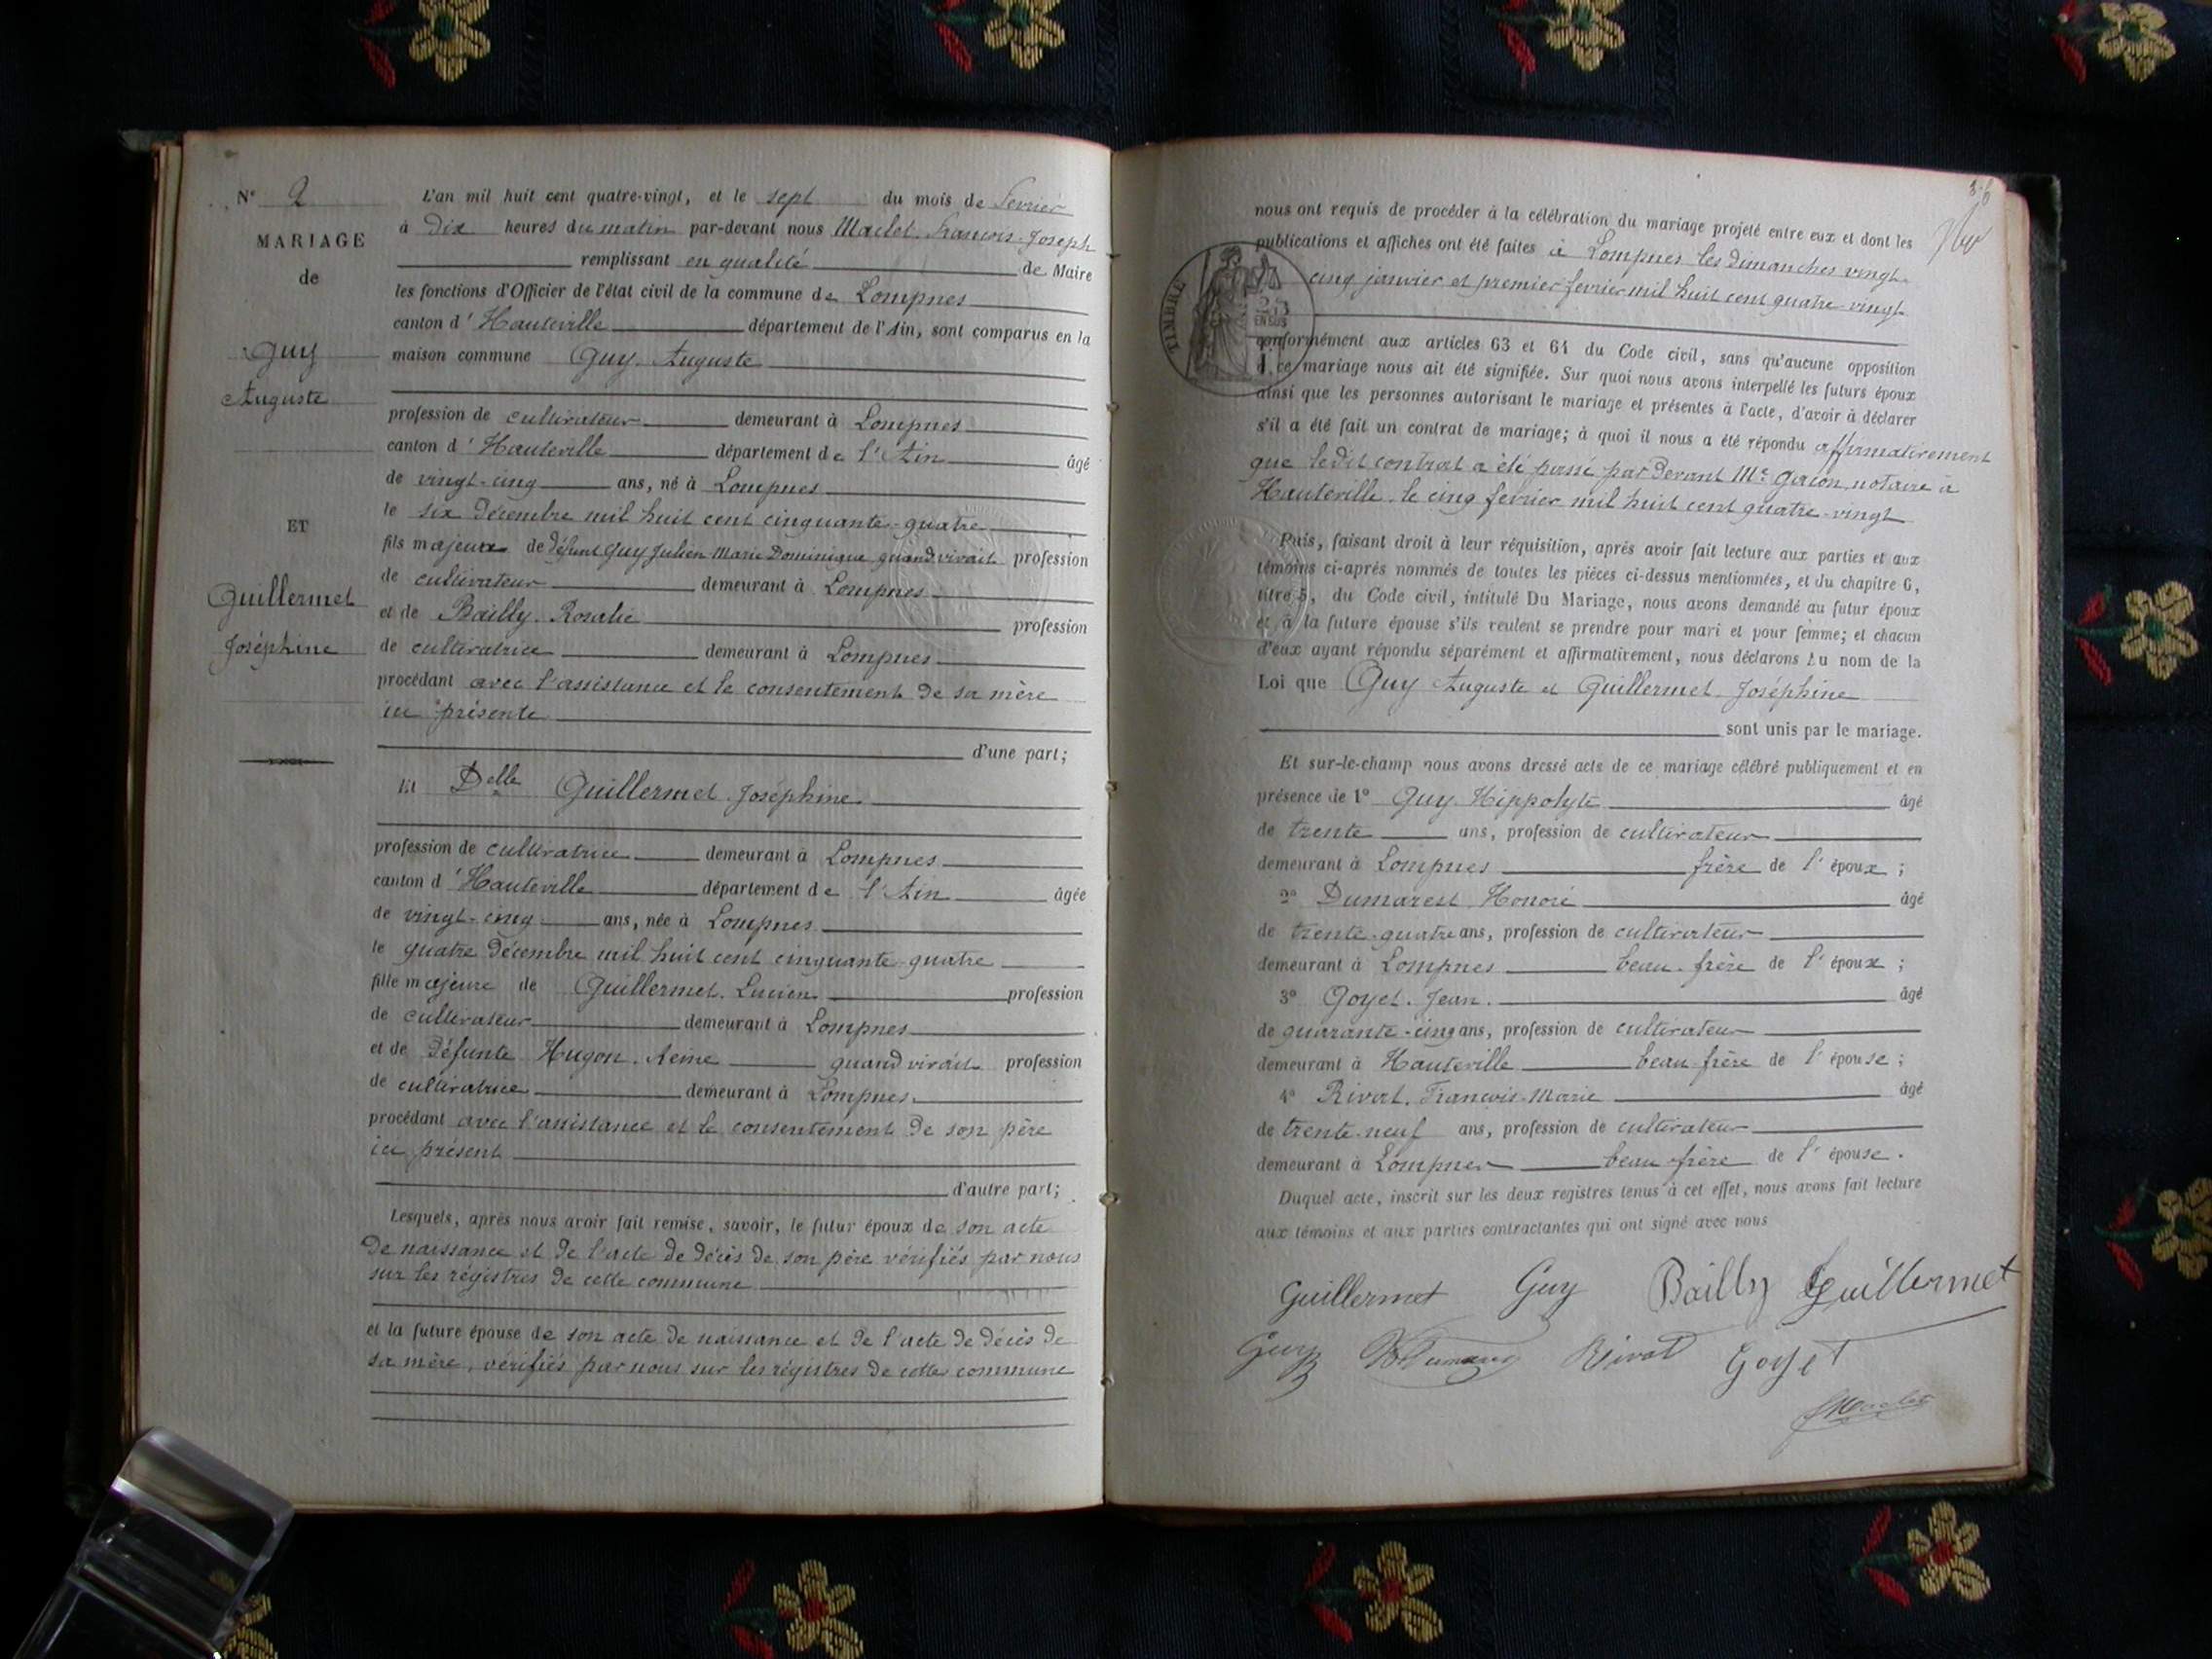 N° 2
MARIAGE
de
Guy
Auguste
ET
Guillermet
Joséphine
L'an mil huit cent quatre-vingt, et le sept du mois de Fevrier
à Dix heures du matin par-devant nous Maclet François-Joseph
remplissant en qualité de Maire
les fonctions d'Officier de l'état civil de la commune de Lompnes
canton d'Hauteville département de l'Ain, sont comparus en la
maison commune Guy Auguste
profession de cultivateur demeurant à Lompnes
canton d'Hauteville département de l'Ain âgé
de vingt-cinq ans, né à Lompnes
le six Décembre mil huit cent cinquante-quatre
fils majeur de défunt Guy Julien Marie Dominique quand vivait profession
de cultivateur demeurant à Lompnes
et de Bailly Rosalie profession
de cultivatrice demeurant à Lompnes
procédant avec l'assistance et le consentement de sa mère
ici présente
d'une part;
Et Delle Guillermet Joséphine
profession de cultivatrice demeurant à Lompnes
canton d'Hauteville département de l'Ain âgée
de vingt-cinq ans, née à Lompnes
le quatre Décembre mil huit cent cinquante-quatre
fille majeure de Guillermet Lucien profession
de cultivateur demeurant à Lompnes
et de Défunte Hugon Reine quand vivait profession
de cultivatrice demeurant à Lompnes
procédant avec l'assistance et le consentement de son père
ici présent
d'autre part;
Lesquels, après nous avoir fait remise, savoir, le futur époux de son acte
de naissance et de l'acte de décès de son père vérifiés par nous
sur les régistres de cette commune
et la future épouse de son acte de naissance et de l'acte de décès de
sa mère, vérifiés par nous sur les régistres de cette commune
nous ont requis de procéder à la célébration du mariage projeté entre eux et dont les
publications et affiches ont été faites à Lompnes les dimanches vingt-
cinq janvier et premier fevrier mil huit cent quatre-vingt
TIMBRE
25
EN SUS
conformément aux articles 63 et 64 du Code civil, sans qu'aucune opposition
à ce mariage nous ait été signifiée. Sur quoi nous avons interpellé les futurs époux
ainsi que les personnes autorisant le mariage et présentes à l'acte, d'avoir à déclarer
s'il a été fait un contrat de mariage; à quoi il nous a été répondu affirmativement
que ledit contrat a été passé par devant Me notaire à
Hauteville le cinq fevrier mil huit cent quatre-vingt
Puis, faisant droit à leur réquisition, après avoir fait lecture aux parties et aux
témoins ci-après nommés de toutes les pièces ci-dessus mentionnées, et du chapitre 6,
titre 5, du Code civil, intitulé Du Mariage, nous avons demandé au futur époux
et à la future épouse s'ils veulent se prendre pour mari et pour femme; et chacun
d'eux ayant répondu séparément et affirmativement, nous déclarons au nom de la
Loi que Guy Auguste et Guillermet Joséphine
sont unis par le mariage.
Et sur-le-champ nous avons dressé acte de ce mariage célébré publiquement et en
présence de 1° Guy Hippolyte âgé
de trente ans, profession de cultivateur
demeurant à Lompnes frère de l'époux;
2° Dumarest Honoré âgé
de trente-quatre ans, profession de cultivateur
demeurant à Lompnes beau-frère de l'époux;
3° Goyet Jean âgé
de quarante-cinq ans, profession de cultivateur
demeurant à Hauteville beau-frère de l'épouse;
4° Rivat François-Marie âgé
de trente-neuf ans, profession de cultivateur
demeurant à Lompnes beau-frère de l'épouse.
Duquel acte, inscrit sur les deux registres tenus à cet effet, nous avons fait lecture
aux témoins et aux parties contractantes qui ont signé avec nous
Guillermet Guy Bailly Guillermet
Guy Rivat Goyet